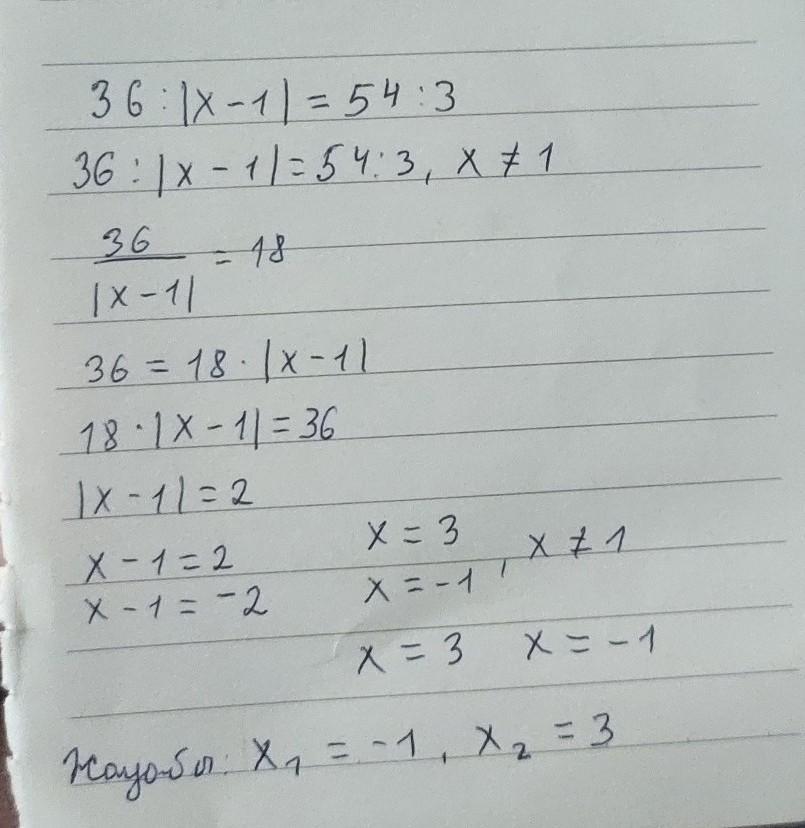 36 : |x - 1| = 54 : 3
36 : |x - 1| = 54 : 3, x ≠ 1
36
|x - 1|
= 18
36 = 18 · |x - 1|
18 · |x - 1| = 36
|x - 1| = 2
x - 1 = 2
x - 1 = -2
x = 3
x = -1
, x ≠ 1
x = 3 x = -1
Жауабы: x₁ = -1, x₂ = 3